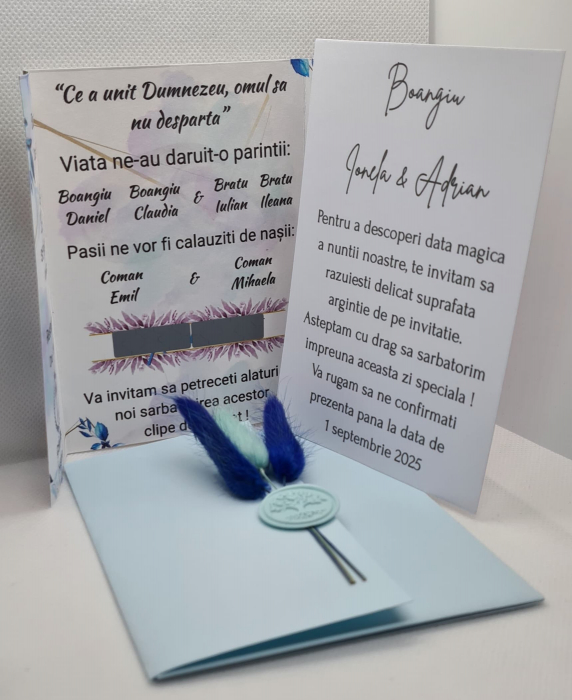 “Ce a unit Dumnezeu, omul sa
nu desparta”
Viata ne-au daruit-o parintii:
Boangiu Boangiu & Bratu Bratu
Daniel Claudia Iulian Ileana
Pasii ne vor fi calauziti de nașii:
Coman & Coman
Emil Mihaela
Va invitam sa petreceti alaturi
noi acestor
clipe
Boangiu
Ionela & Adrian
Pentru a descoperi data magica
a nuntii noastre, te invitam sa
razuiesti delicat suprafata
argintie de pe invitatie.
Asteptam cu drag sa sarbatorim
impreuna aceasta zi speciala !
Va rugam sa ne confirmati
prezenta pana la data de
1 septembrie 2025